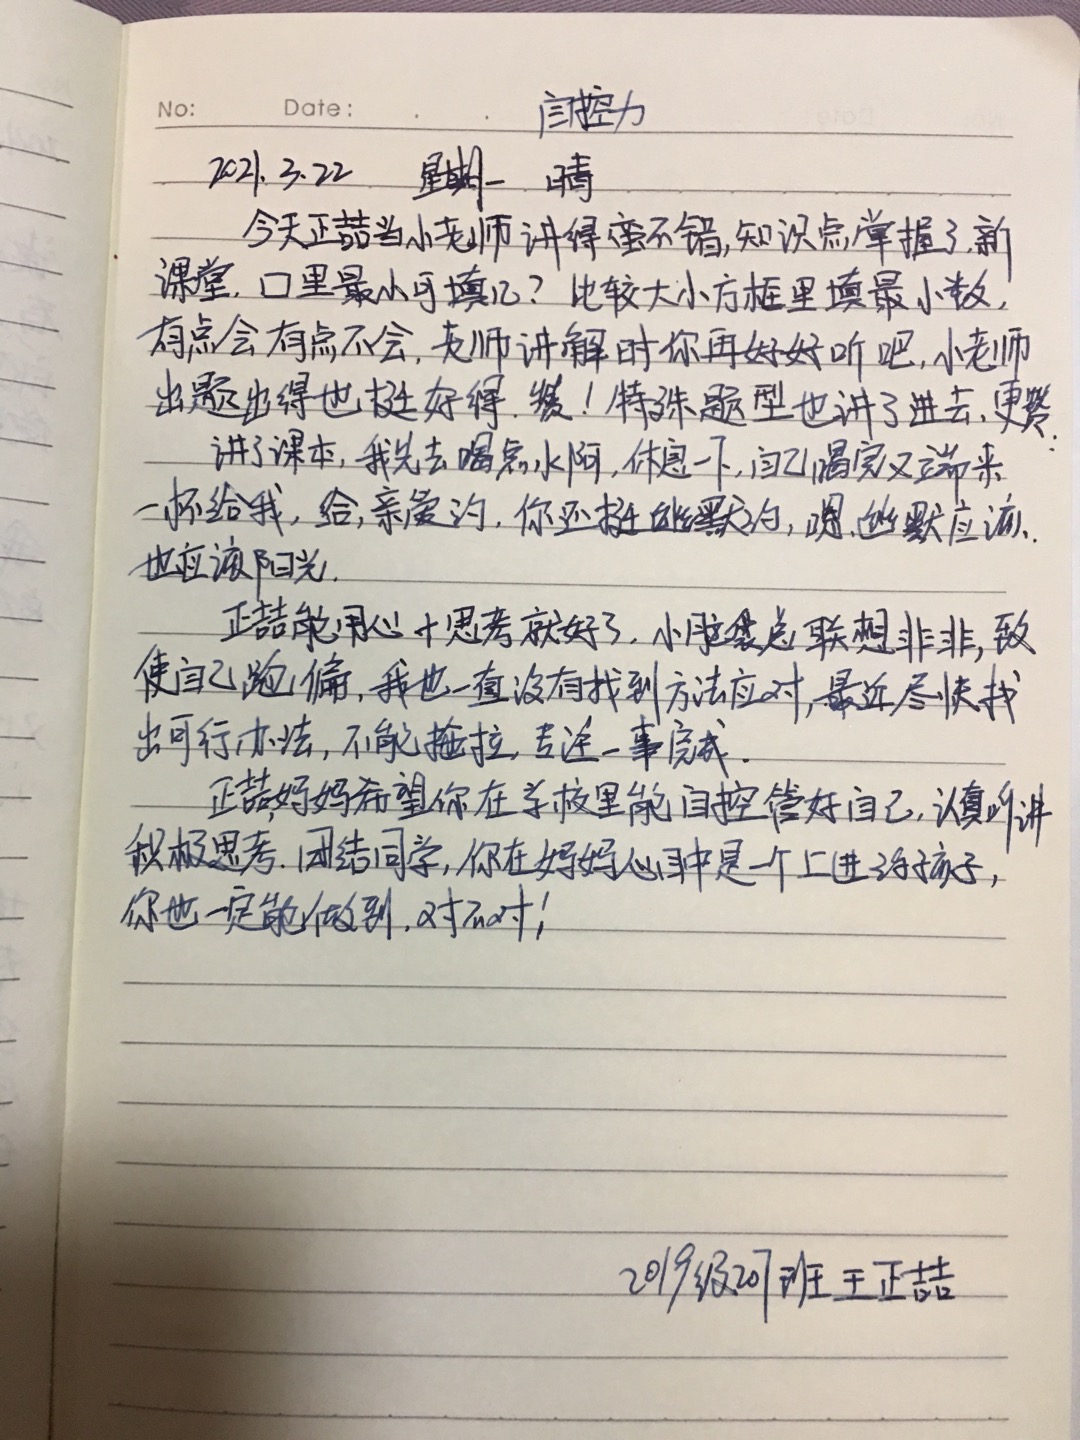 No: Date: 自控力
2021.3.22 星期一 晴
今天正喆当小老师讲得蛮不错,知识点掌握了.新
课堂.口里最小可填几?比较大小方框里填最小数.
有点会有点不会,老师讲解时你再好好听吧,小老师
出题出得也挺好得.赞!特殊题型也讲了进去,更赞.
讲了课本,我先去喝点水啊,休息一下,自己喝完又端来
一杯给我,给,亲爱的.你还挺幽默的,嗯.幽默应该.
也应该阳光.
正喆能用心+思考就好了.小脑袋总联想非非,致
使自己跑偏,我也一直没有找到方法应对,最近尽快找
出可行办法,不能拖拉,专注一事完成.
正喆,妈妈希望你在学校里能自控管好自己,认真听讲
积极思考.团结同学,你在妈妈心目中是一个上进的孩子,
你也一定能做到.对不对!
2019级207班王正喆